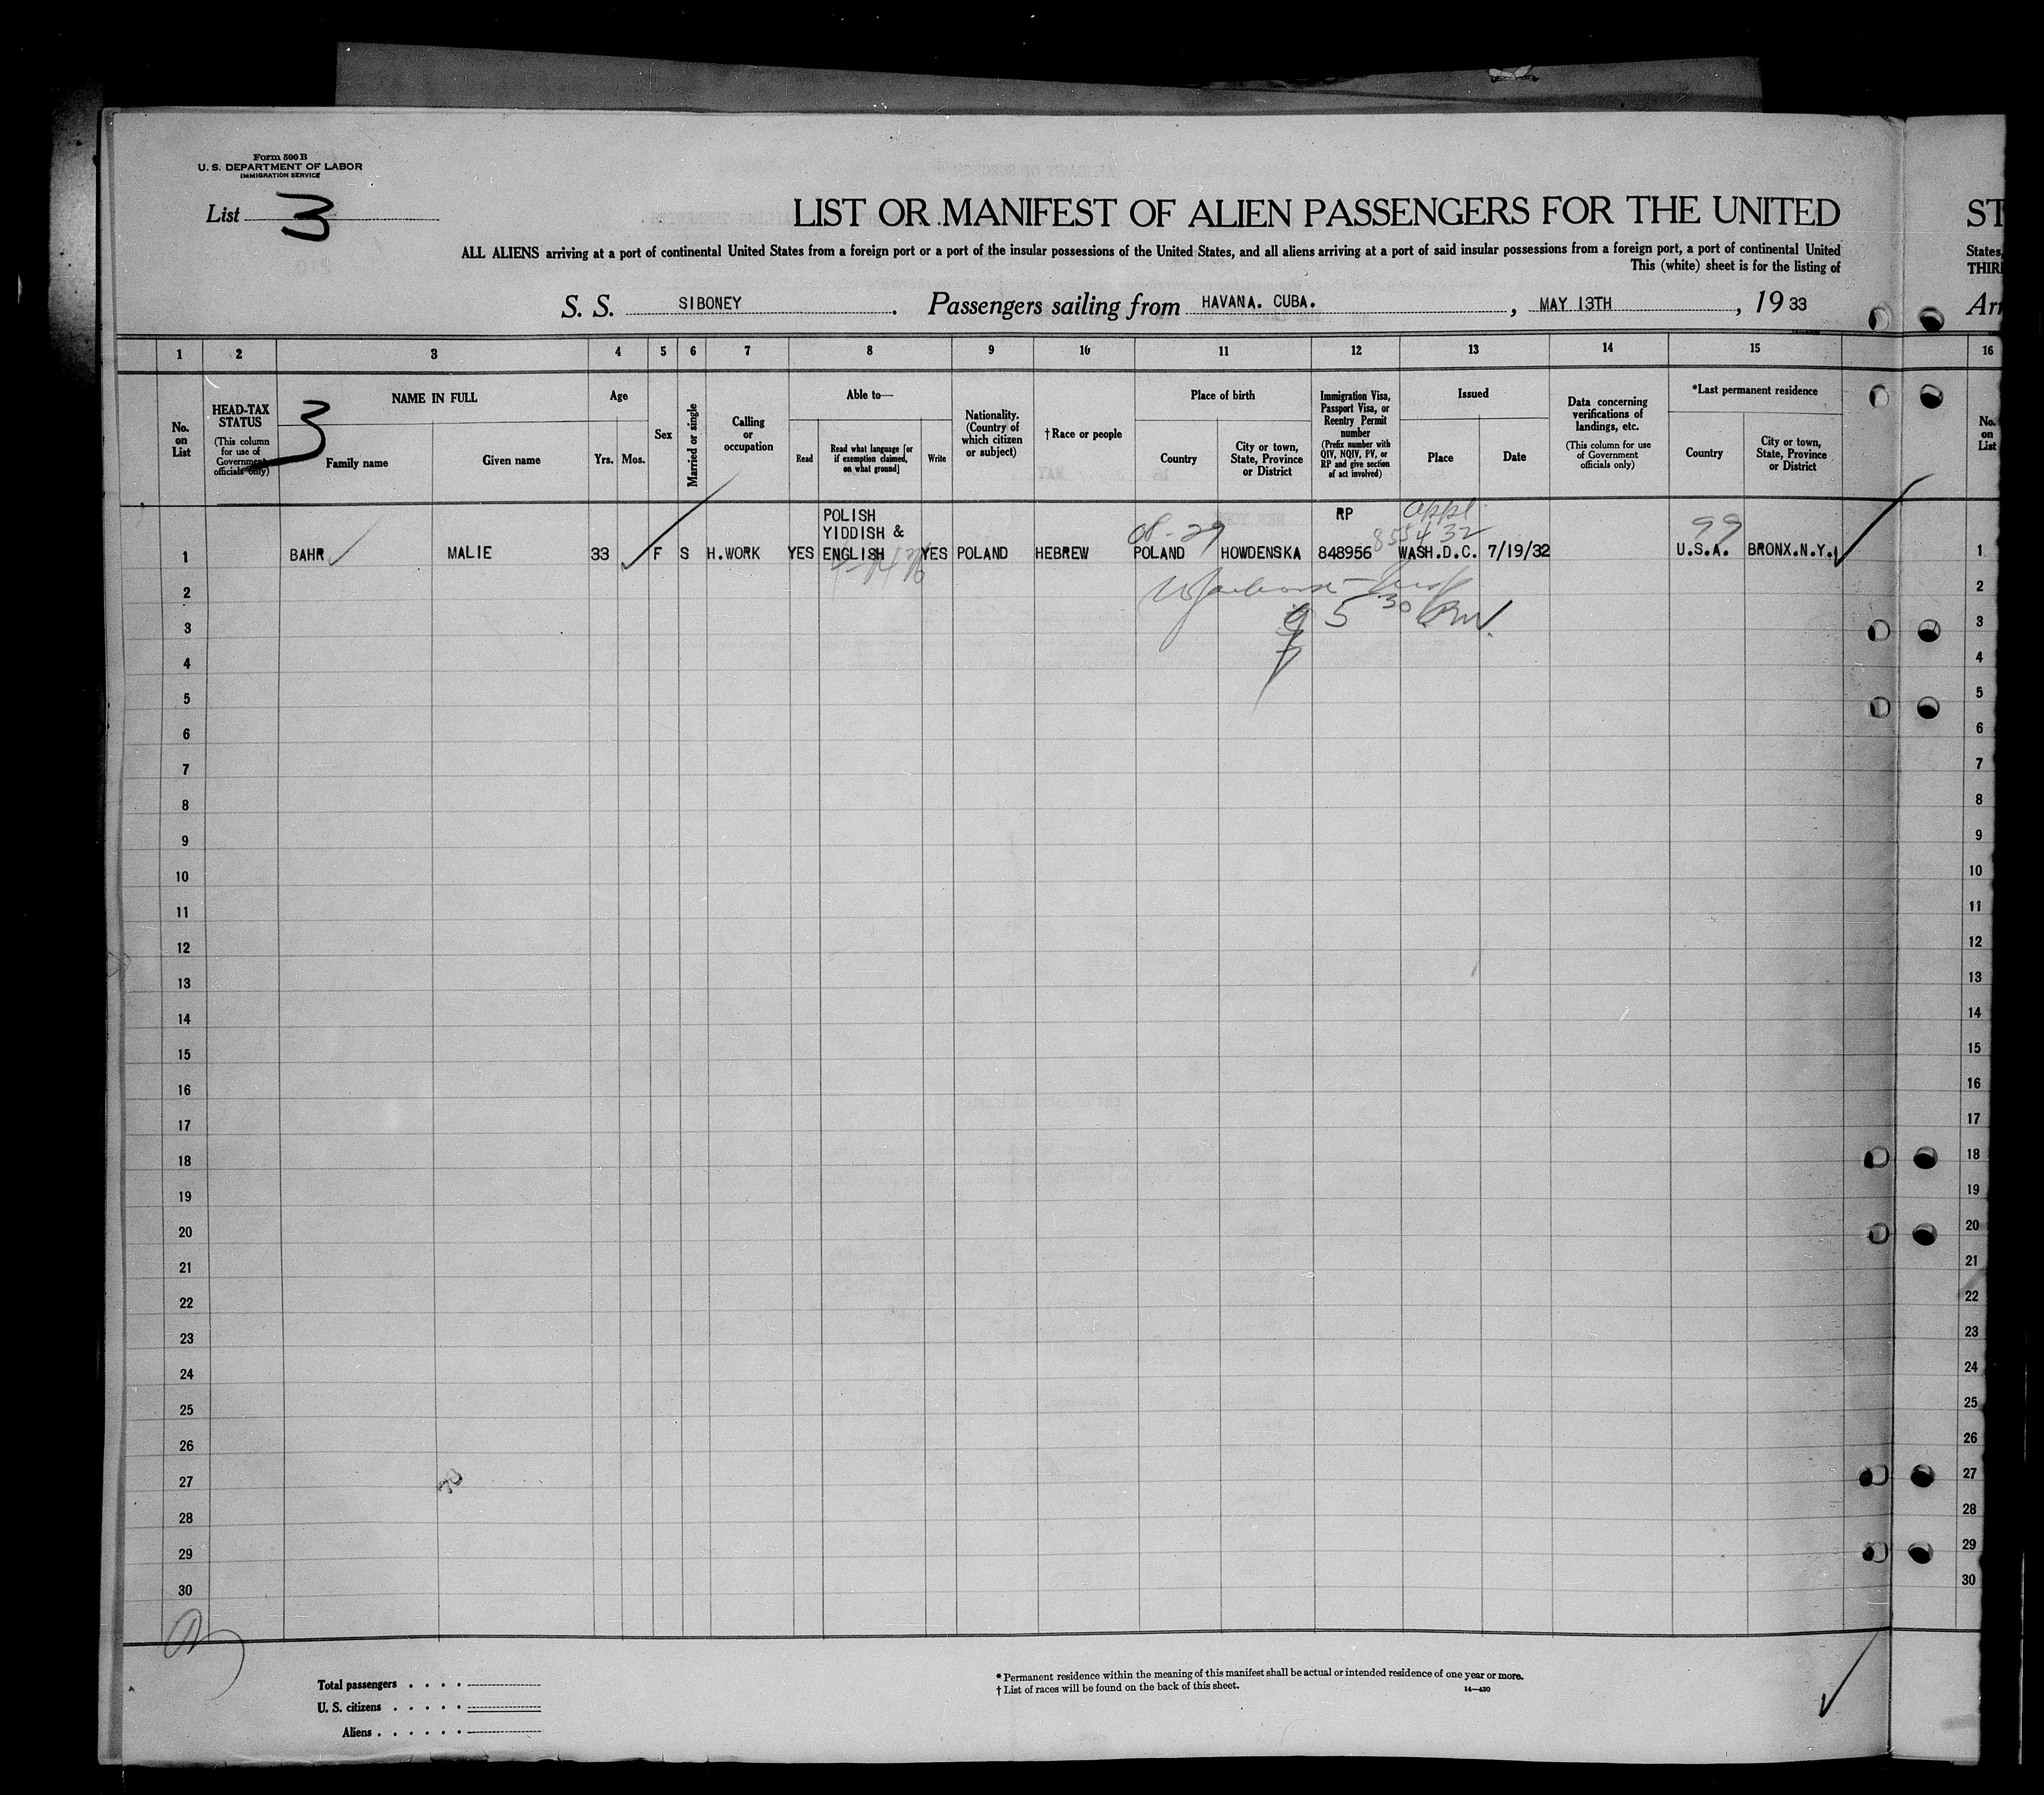 Form 500 B
U. S. DEPARTMENT OF LABOR
IMMIGRATION SERVICE
List 3
LIST OR MANIFEST OF ALIEN PASSENGERS FOR THE UNITED
ST
ALL ALIENS arriving at a port of continental United States from a foreign port or a port of the insular possessions of the United States, and all aliens arriving at a port of said insular possessions from a foreign port, a port of continental United
States,
This (white) sheet is for the listing of
THIR
S. S. SIBONEY. Passengers sailing from HAVANA. CUBA., MAY 13TH, 1933
Arr
1 2 3 4 5 6 7 8 9 10 11 12 13 14 15 16
No. on List
HEAD-TAX STATUS
(This column for use of Government officials only)
3
NAME IN FULL
Family name
Given name
Age
Yrs. Mos.
Sex
Married or single
Calling or occupation
Able to—
Read
Read what language [or if exemption claimed, on what ground]
Write
Nationality. (Country of which citizen or subject)
† Race or people
Place of birth
Country
City or town, State, Province or District
Immigration Visa, Passport Visa, or Reentry Permit number
(Prefix number with QIV, NQIV, PV, or RP and give section of act involved)
Issued
Place
Date
Data concerning verifications of landings, etc.
(This column for use of Government officials only)
*Last permanent residence
Country
City or town, State, Province or District
No. on List
POLISH RP appl.
YIDDISH & 08-29 855432 99
1 BAHR MALIE 33 F S H.WORK YES ENGLISH YES POLAND HEBREW POLAND HOWDENSKA 848956 WASH.D.C. 7/19/32 U.S.A. BRONX.N.Y. 1
2 2
3 5 30 3
4 4
5 5
6 6
7 7
8 8
9 9
10 10
11 11
12 12
13 13
14 14
15 15
16 16
17 17
18 18
19 19
20 20
21 21
22 22
23 23
24 24
25 25
26 26
27 27
28 28
29 29
30 30
Total passengers
U. S. citizens
Aliens
* Permanent residence within the meaning of this manifest shall be actual or intended residence of one year or more.
† List of races will be found on the back of this sheet.
14—430